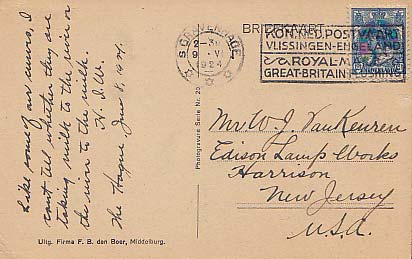 BRIEFKAART
'S GRAVENHAGE
2-3
9 VI
1924
KON. NED. POSTVAART
VLISSINGEN-ENGELAND
ROYAL-M
GREAT-BRITAIN FLUSHING
Like some of our cows, I
cant tell whether they are
taking milk to the river or
the river to the milk.
H. I. W.
The Hague June 8, 1924.
Mr W. J. Van Keuren
Edison Lamp Works
Harrison
New Jersey
U.S.A.
Photogravure Serie Nr. 20
Uitg. Firma F. B. den Boer, Middelburg.